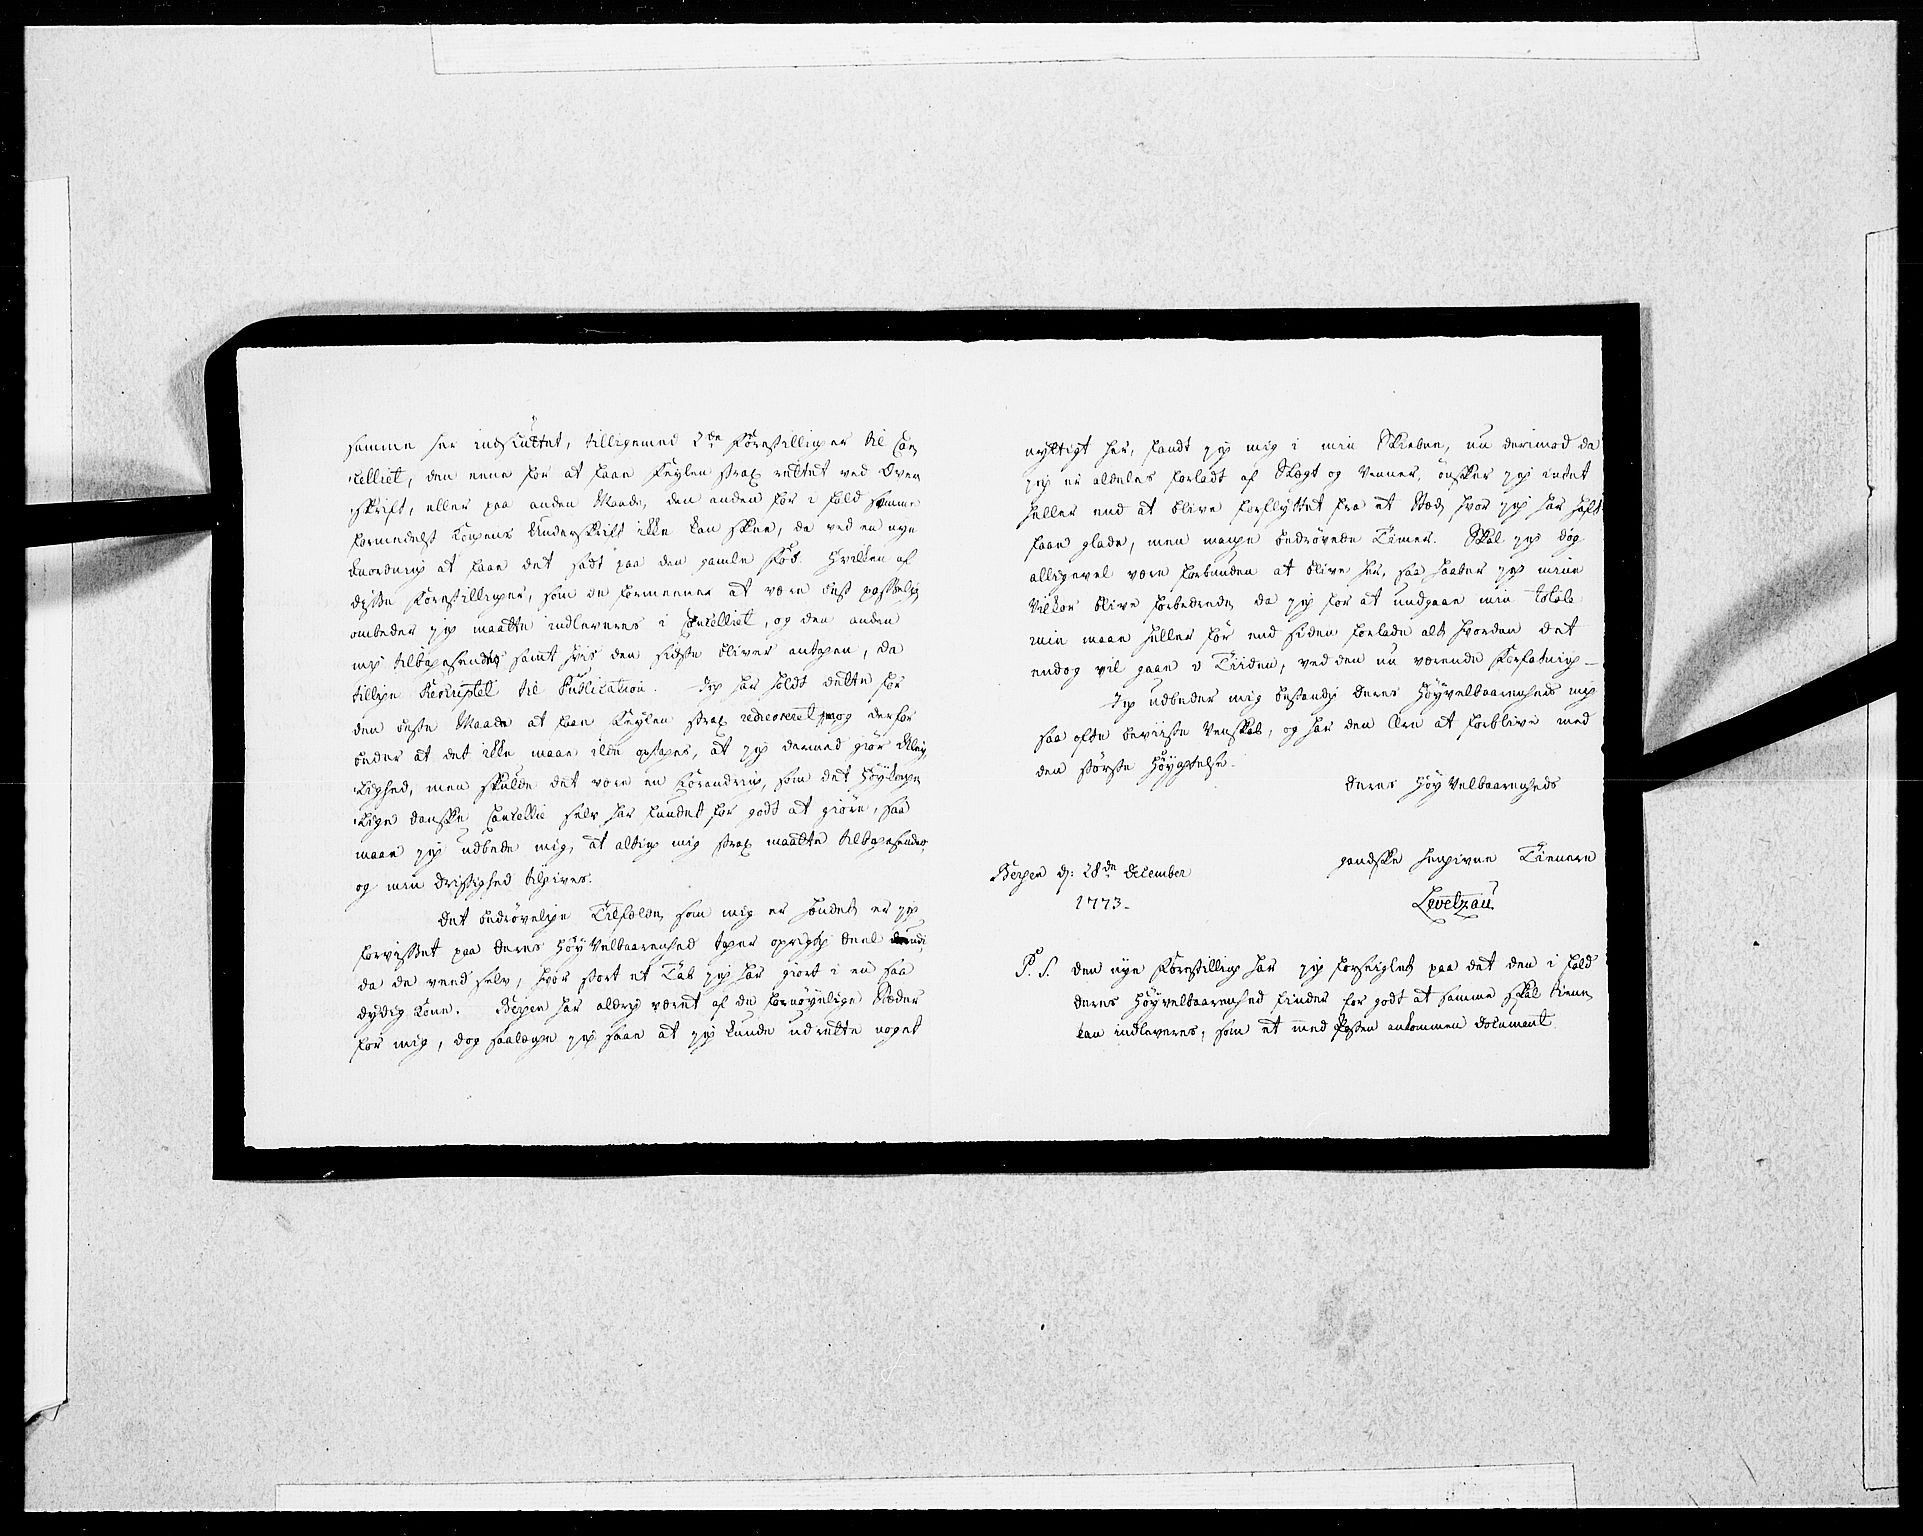 samme her indsluttet, tilligemed 2de Forestillinger til Can
celliet, den eene for at faae Feylen strax rettet ved Over
skrift, eller paa anden Maade, den anden for i fald samme
formedelst Kongens Underskrift ikke kan skee, da ved en nye
Anordning at faae det sadt paa den gamle Fod. Hvilken af
disse Forestillinger, som de formeener at være best passelig
ombeder jeg maatte indleveres i Cancelliet, og den anden
mig tilbagesendes samt hvis den sidste bliver antagen, da
tillige Rescriptet til Publication. Jeg har holdt dette for
den beste Maade at faae Feylen strax redresseret og derfor
beder at det ikke maae ilde optages, at jeg dermed giør Uley
lighed, men skulde det være en Forandring, som det Høykonge
lige danske Cancellie selv har fundet for godt at giøre, saa
maae jeg udbede mig, at alting mig strax maatte tilbagesendes,
og min dristighed tilgives.
Det bedrøvelige Tilfælde, som mig er hændet, er jeg
forvisset paa Deres Høy Velbaarenhed tager oprigtig deel
da de veed selv, hvor stort et Tab jeg har giort i en saa
dydig Kone. Bergen har aldrig været af de fornøyelige Stæder
for mig, dog saalænge jeg saae at jeg kunde udrette noget
nyttigt her, fandt jeg mig i min Skiebne, nu derimod da
jeg er aldeles forladt af Slægt og Venner, ønsker jeg intet
heller end at blive forflyttet fra et Stæd, hvor jeg har haft
faae glade, men mange bedrøvede Timer. Skal jeg dog
alligevel være forbunden at blive her, saa haaber jeg mine
Vilkor blive forbedrede, da jeg for at undgaae min totale
min maae heller før end siden forlade alt, hvordan det
endog vil gaae i Tiiden, ved den nu værende Forfatning-
Jeg udbeder mig bestandig Deres Høyvelbaarenheds mig
saa ofte beviiste Venskab, og har den Ære at forblive med
den største Høyagtelse-
Deres Høy Velbaarenheds
gandske hengivne Tiener
Bergen d: 28de December
1773-
Levetzau
P. S. den nye Forestilling har jeg forseiglet, paa det den i fald
Deres Høyvelbaarenhed finder for godt at samme skal tiene,
kan indleveres, som et med Posten ankommen document.